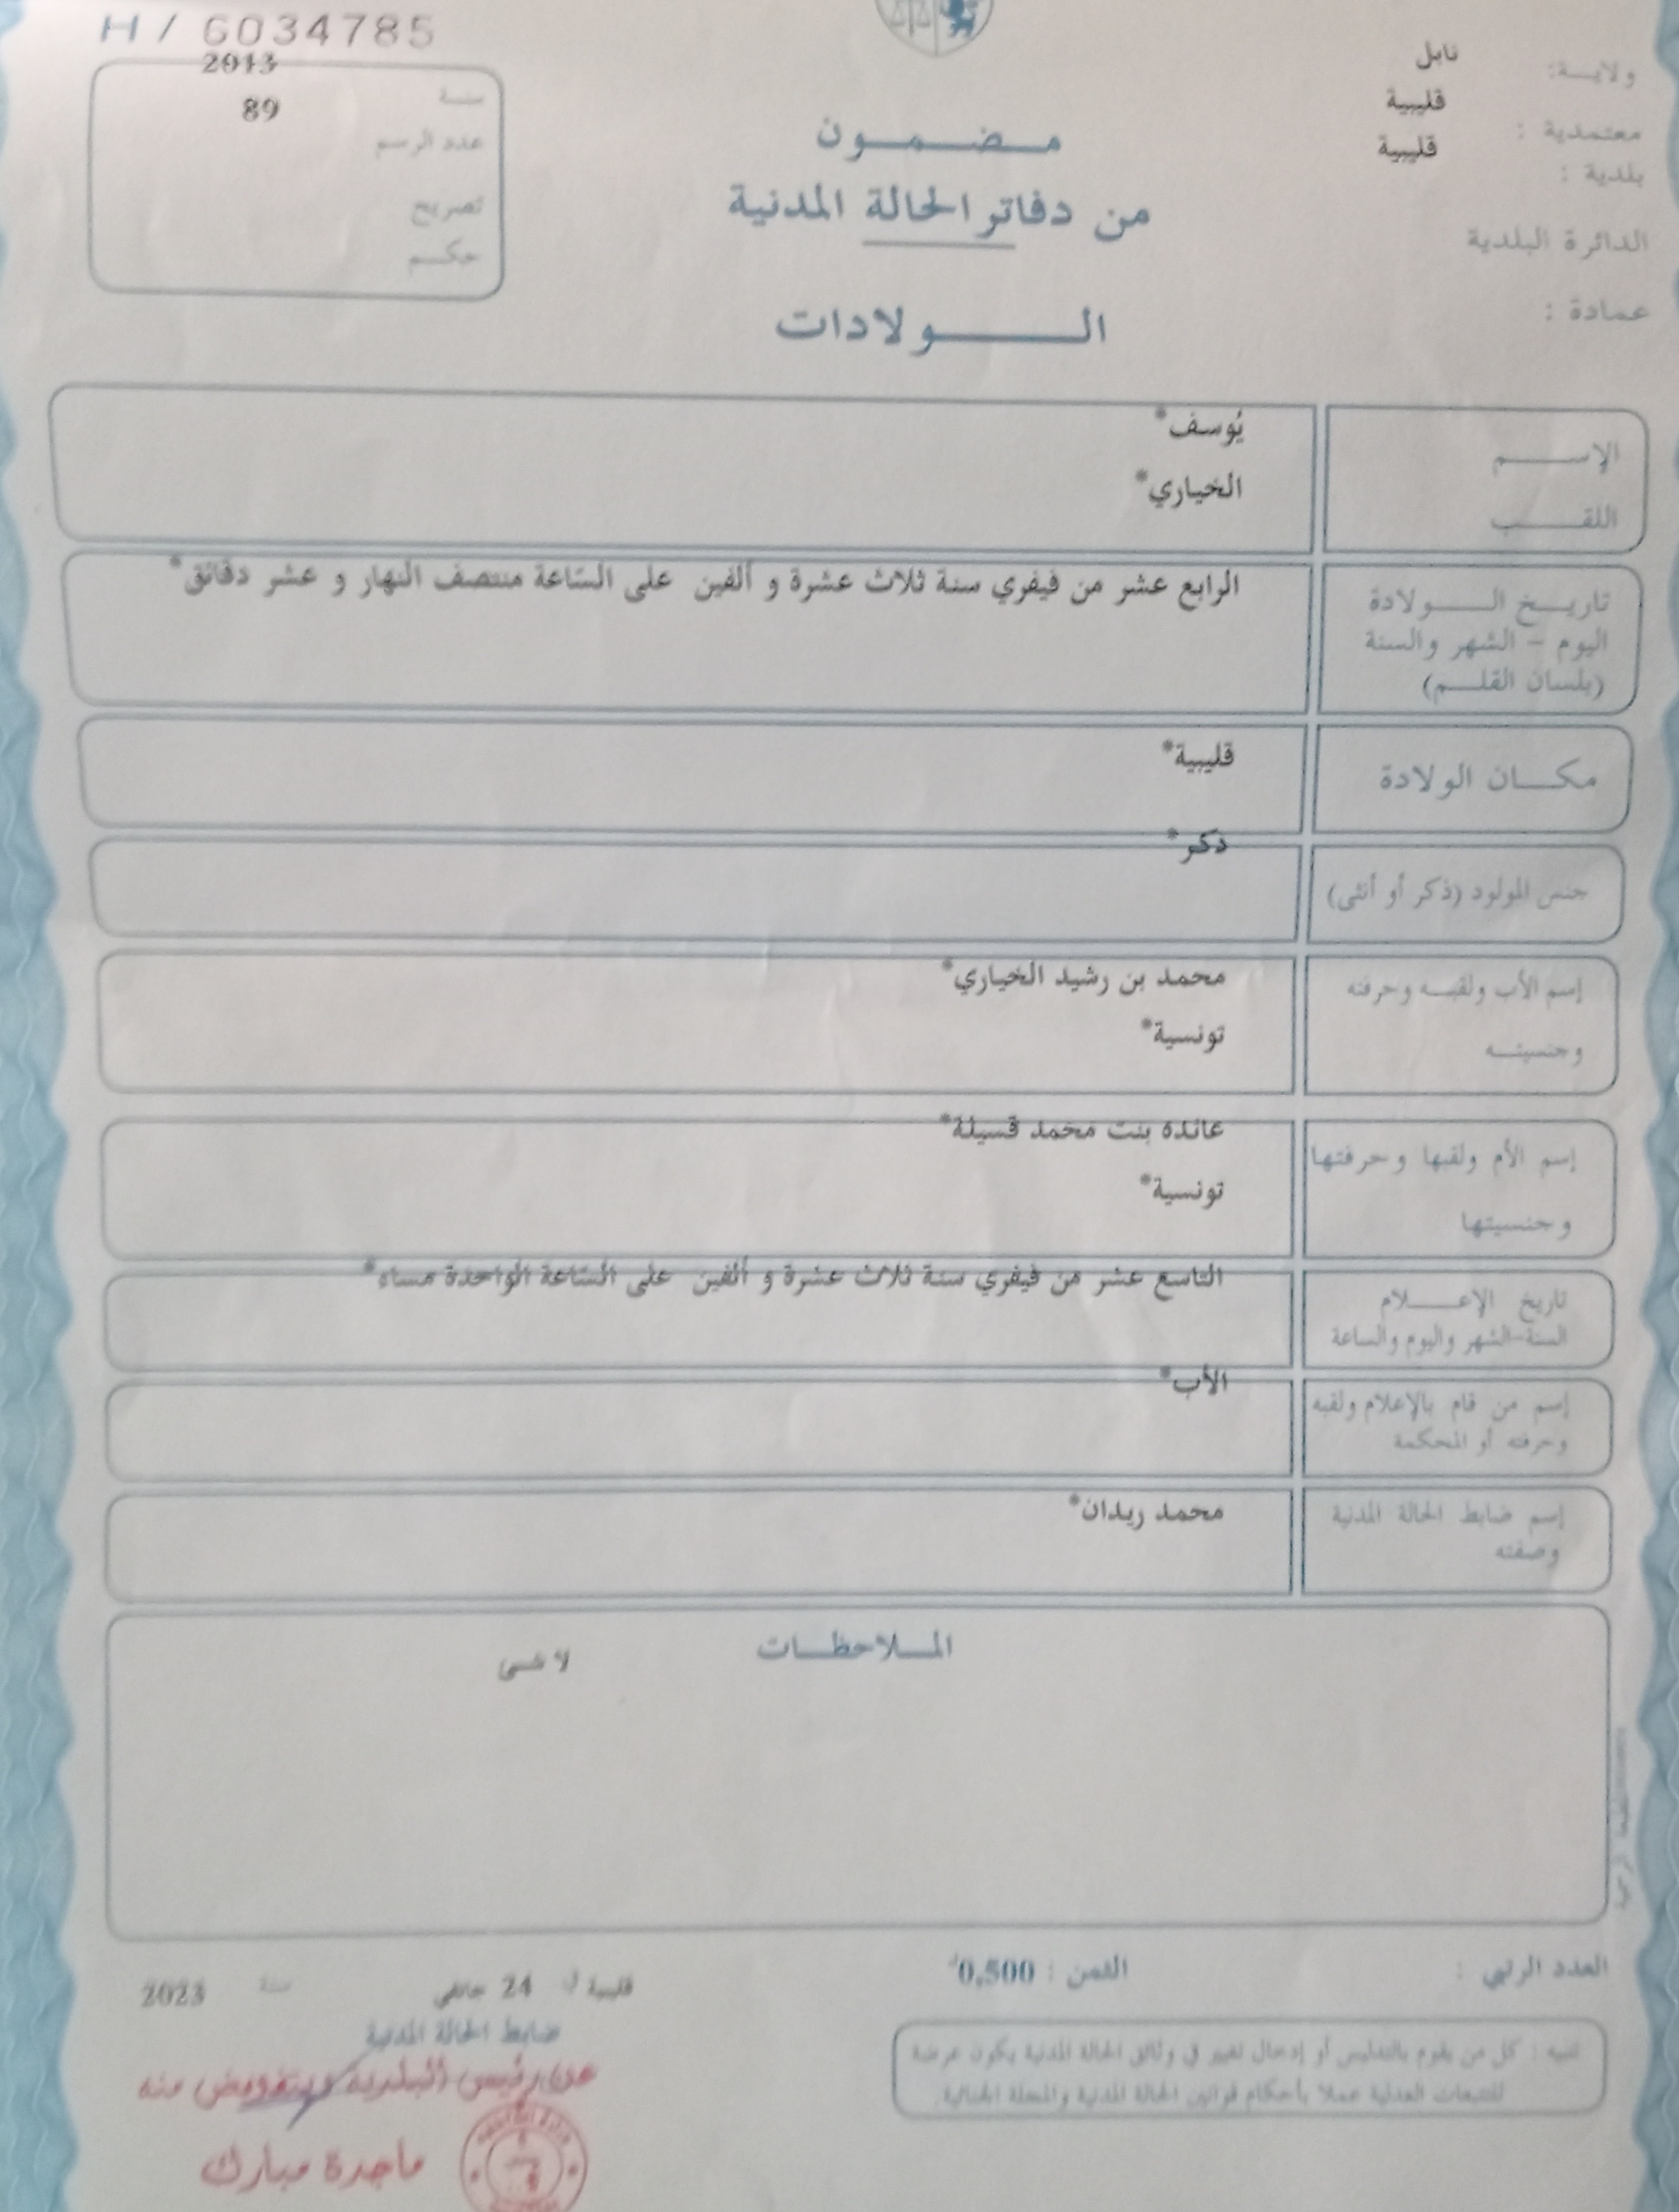 H / 6034785
ولايـــة: نابل
معتمدية : قليبية
بلدية : قليبية
الدائرة البلدية
عمادة :
سنة 2013
عدد الرسم 89
تصريح
حكـــم
مـضـمـون
من دفاتر الحالة المدنية
الـــولادات
الإســـم يُوسف*
اللقـــب الخياري*
تاريــخ الـــولادة الرابع عشر من فيفري سنة ثلاث عشرة و ألفين على السّاعة منتصف النهار و عشر دقائق*
اليوم - الشهر والسنة
(بلسان القلـــم)
مكـــان الولادة قليبية*
جنس المولود (ذكر أو أنثى) ذكر*
إسم الأب ولقبـــه وحرفته محمد بن رشيد الخياري*
وجنسيتـــه تونسية*
إسم الأم ولقبها وحرفتها عائدة بنت محمد قسيلة*
وجنسيتها تونسية*
تاريخ الإعـــلام التاسع عشر من فيفري سنة ثلاث عشرة و ألفين على السّاعة الواحدة مساء*
السنة-الشهر واليوم والساعة
إسم من قام بالإعلام ولقبه الأب*
وحرفته أو المحكمة
إسم ضابط الحالة المدنية محمد ريدان*
وصفته
الملاحظـــات
لا شى
العدد الرتبي :
الثمن : 0,500د
قليبية في 24 جانفي سنة 2023
ضابط الحالة المدنية
عن رئيس البلدية وبتفويض منه
ماجدة مبارك
تنبيه : كل من يقوم بالتدليس أو إدخال تغيير في وثائق الحالة المدنية يكون عرضة
للتتبعات العدلية عملا بأحكام قوانين الحالة المدنية والمجلة الجنائية.